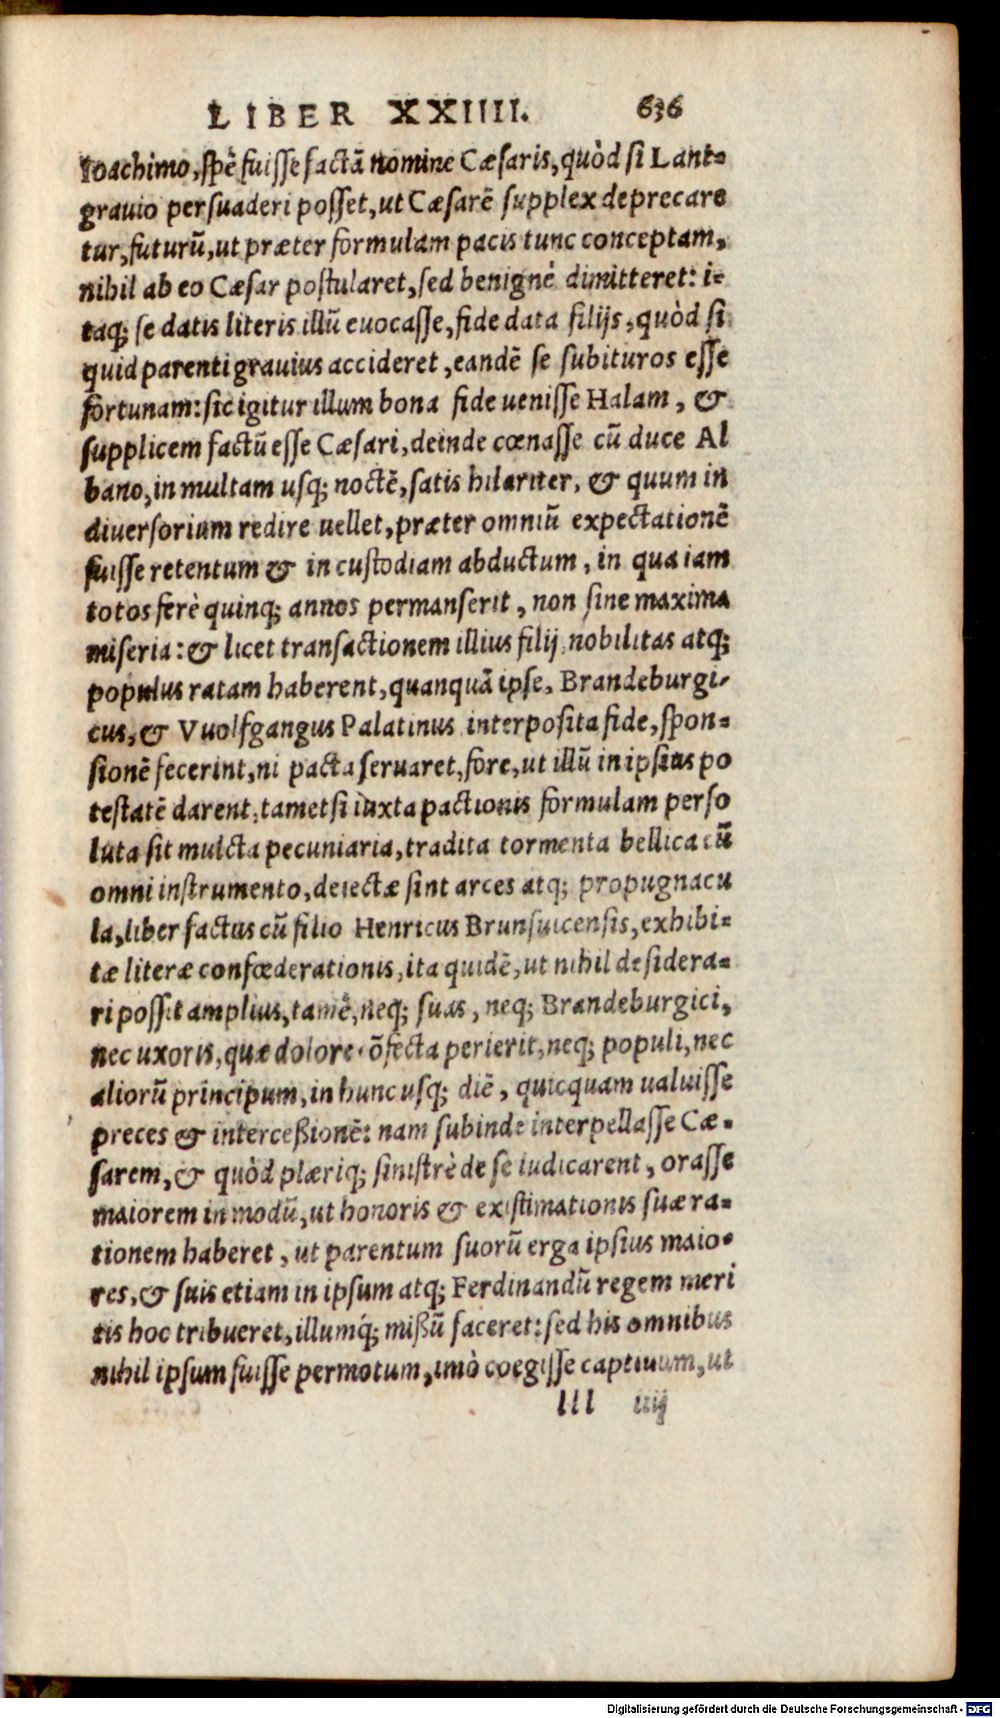 LIBER XXIIII. 636
Ioachimo, spē fuisse factā nomine Cæsaris, quòd si Lant-
grauio persuaderi posset, ut Cæsarē supplex deprecare
tur, futurū, ut præter formulam pacis tunc conceptam,
nihil ab eo Cæsar postularet, sed benignè dimitteret: i-
taq; se datis literis illū euocasse, fide data filijs, quòd si
quid parenti grauius accideret, eandē se subituros esse
fortunam: sic igitur illum bona fide uenisse Halam, &
supplicem factū esse Cæsari, deinde cœnasse cū duce Al
bano, in multam usq; noctē, satis hilariter, & quum in
diuersorium redire uellet, præter omniū expectationē
fuisse retentum & in custodiam abductum, in qua iam
totos ferè quinq; annos permanserit, non sine maxima
miseria: & licet transactionem illius filij, nobilitas atq;
populus ratam haberent, quanquā ipse, Brandeburgi-
cus, & Vuolfgangus Palatinus interposita fide, spon-
sionē fecerint, ni pacta seruaret, fore, ut illū in ipsius po
testatē darent, tametsi iuxta pactionis formulam perso
luta sit mulcta pecuniaria, tradita tormenta bellica cū
omni instrumento, deiectæ sint arces atq; propugnacu
la, liber factus cū filio Henricus Brunsuicensis, exhibi-
tæ literæ confœderationis, ita quidē, ut nihil desidera-
ri possit amplius, tamē, neq; suas, neq; Brandeburgici,
nec uxoris, quæ dolore cōfecta perierit, neq; populi, nec
aliorū principum, in hunc usq; diē, quicquam ualuisse
preces & interceßionē: nam subinde interpellasse Cæ-
sarem, & quòd plæriq; sinistrè de se iudicarent, orasse
maiorem in modū, ut honoris & existimationis suæ ra-
tionem haberet, ut parentum suorū erga ipsius maio-
res, & suis etiam in ipsum atq; Ferdinandū regem meri
tis hoc tribueret, illumq́; mißū faceret: sed his omnibus
nihil ipsum fuisse permotum, imò coegisse captiuum, ut
lll iiij
Digitalisierung gefördert durch die Deutsche Forschungsgemeinschaft - DFG